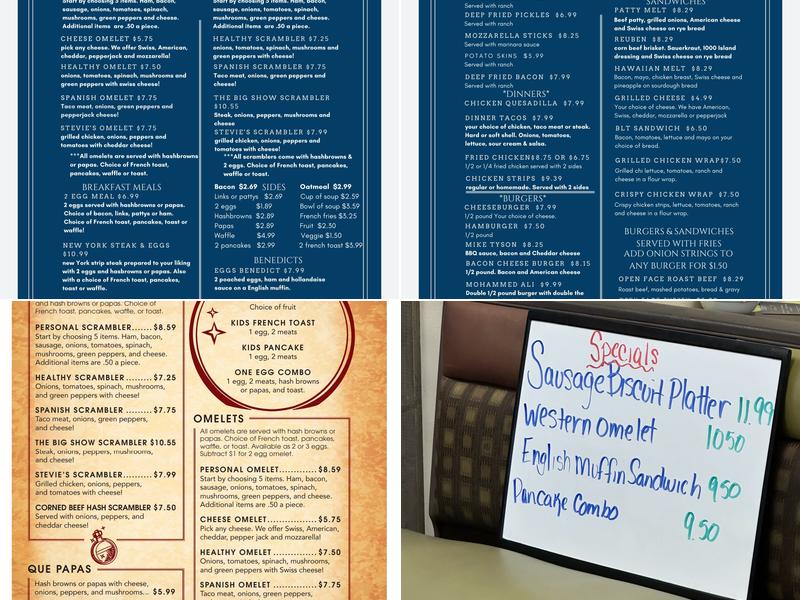 Start by choosing 5 items. Ham, bacon,
sausage, onions, tomatoes, spinach,
mushrooms, green peppers, and cheese.
Additional items are .50 a piece.
CHEESE OMELET $5.75
pick any cheese. We offer Swiss, American,
cheddar, pepperjack and mozzarella!
HEALTHY OMELET $7.50
onions, tomatoes, spinach, mushrooms and
green peppers with swiss cheese!
SPANISH OMELET $7.75
Taco meat, onions, green peppers and
pepperjack cheese!
STEVIE'S OMELET $7.75
grilled chicken, onions, peppers and
tomatoes with cheddar cheese!
***All omelets are served with hashbrowns
or papas. Choice of French toast,
pancakes, waffle or toast.
BREAKFAST MEALS
2 EGG MEAL $6.99
2 eggs served with hashbrowns or papas.
Choice of bacon, links, pattys or ham.
Choice of French toast, pancakes, toast or
waffle!
NEW YORK STEAK & EGGS
$10.99
new York strip steak prepared to your liking
with 2 eggs and hasbrowns or papas. Also
with a choice of french toast, pancakes,
toast or waffle.
Start by choosing 5 items. Ham, bacon,
sausage, onions, tomatoes, spinach,
mushrooms, green peppers, and cheese.
Additional items are .50 a piece.
HEALTHY SCRAMBLER $7.25
onions, tomatoes, spinach, mushrooms and
green peppers with cheese!
SPANISH SCRAMBLER $7.75
Taco meat, onions, green peppers and
cheese!
THE BIG SHOW SCRAMBLER
$10.55
Steak, onions, peppers, mushrooms and
cheese
STEVIE'S SCRAMBLER $7.99
grilled chicken, onions, peppers and
tomatoes with cheese!
***All scramblers come with hashbrowns &
2 eggs. Choice of French toast,
pancakes, waffle or toast.
Bacon $2.69 SIDES Oatmeal $2.99
Links or pattys $2.69 Cup of soup $2.59
2 eggs $1.89 Bowl of soup $3.59
Hashbrowns $2.89 French fries $3.25
Papas $2.89 Fruit $2.50
Waffle $4.99 Veggie $1.50
2 pancakes $2.99 2 french toast $3.99
BENEDICTS
EGGS BENEDICT $7.99
2 poached eggs, ham and hollandaise
sauce on a English muffin.
Served with ranch
DEEP FRIED PICKLES $6.99
Served with ranch
MOZZARELLA STICKS $8.25
Served with marinara sauce
POTATO SKINS $5.99
Served with ranch
DEEP FRIED BACON $7.99
Served with ranch
*DINNERS*
CHICKEN QUESADILLA $7.99
DINNER TACOS $7.99
your choice of chicken, taco meat or steak.
Hard or soft shell. Onions, tomatoes,
lettuce, sour cream & salsa.
FRIED CHICKEN$8.75 OR $6.75
1/2 or 1/4 fried chicken served with 2 sides
CHICKEN STRIPS $9.39
regular or homemade. Served with 2 sides
*BURGERS*
CHEESEBURGER $7.99
1/2 pound Your choice of cheese.
HAMBURGER $7.50
1/2 pound
MIKE TYSON $8.25
BBQ sauce, bacon and Cheddar cheese
BACON CHEESE BURGER $8.15
1/2 pound. Bacon and American cheese
MOHAMMED ALI $9.99
Double 1/2 pound burger with double the
SANDWICHES
PATTY MELT $8.29
Beef patty, grilled onions, American cheese
and Swiss cheese on rye bread
REUBEN $8.29
corn beef brisket. Sauerkraut, 1000 Island
dressing and Swiss cheese on rye bread
HAWAIIAN MELT $8.29
Bacon, mayo, chicken breast, Swiss cheese and
pineapple on sourdough bread
GRILLED CHEESE $4.99
Your choice of cheese. We have American,
Swiss, cheddar, mozzarella or pepperjack
BLT SANDWICH $6.50
Bacon, tomatoes, lettuce and mayo on your
choice of bread.
GRILLED CHICKEN WRAP$7.50
Grilled chi lettuce, tomatoes, ranch and
cheese in a flour wrap.
CRISPY CHICKEN WRAP $7.50
Crispy chicken strips, lettuce, tomatoes, ranch
and cheese in a flour wrap.
BURGERS & SANDWICHES
SERVED WITH FRIES
ADD ONION STRINGS TO
ANY BURGER FOR $1.50
OPEN FACE ROAST BEEF $8.29
Roast beef, mashed potatoes, bread & gravy
and hash browns or papas. Choice of
French toast, pancakes, waffle, or toast.
PERSONAL SCRAMBLER.......$8.59
Start by choosing 5 items. Ham, bacon,
sausage, onions, tomatoes, spinach,
mushrooms, green peppers, and cheese.
Additional items are .50 a piece.
HEALTHY SCRAMBLER.........$7.25
Onions, tomatoes, spinach, mushrooms,
and green peppers with cheese!
SPANISH SCRAMBLER.........$7.75
Taco meat, onions, green peppers,
and cheese!
THE BIG SHOW SCRAMBLER $10.55
Steak, onions, peppers, mushrooms,
and cheese!
STEVIE'S SCRAMBLER.........$7.99
Grilled chicken, onions, peppers,
and tomatoes with cheese!
CORNED BEEF HASH SCRAMBLER $7.50
Served with onions, peppers, and
cheddar cheese!
QUE PAPAS
Hash browns or papas with cheese,
onions, peppers, and mushrooms... $5.99
Choice of fruit
KIDS FRENCH TOAST
1 egg, 2 meats
KIDS PANCAKE
1 egg, 2 meats
ONE EGG COMBO
1 egg, 2 meats, hash browns
or papas, and toast.
OMELETS
All omelets are served with hash browns or
papas. Choice of French toast, pancakes,
waffle, or toast. Available as 2 or 3 eggs.
Subtract $1 for 2 egg omelet.
PERSONAL OMELET............$8.59
Start by choosing 5 items. Ham, bacon,
sausage, onions, tomatoes, spinach,
mushrooms, green peppers, and cheese.
Additional items are .50 a piece.
CHEESE OMELET..............$5.75
Pick any cheese. We offer Swiss, American,
cheddar, pepper jack and mozzarella!
HEALTHY OMELET.............$7.50
Onions, tomatoes, spinach, mushrooms,
and green peppers with Swiss cheese!
SPANISH OMELET.............$7.75
Taco meat, onions, green peppers,
Specials
Sausage Biscuit Platter 11.99
Western Omelet 10.50
English Muffin Sandwich 9.50
Pancake Combo 9.50